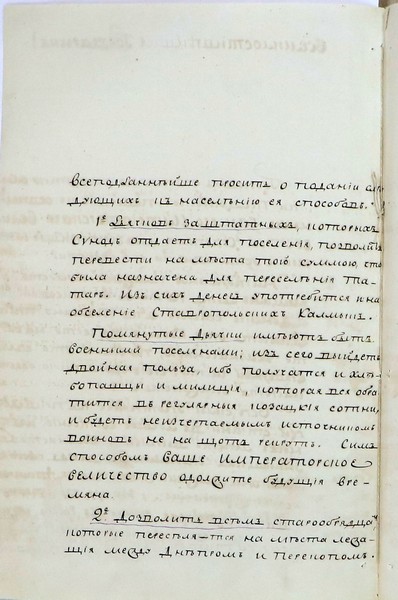 всеподданнѣйше проситъ о поданіи слѣ
дующихъ къ населѣнію ея способовъ.
1е Дьячковъ заштатныхъ, которыхъ
Сѵнодъ отдаетъ для поселенія, позволит
перевести на мѣста тою суммою, что
была назначена для переселѣнія Та
таръ. Изъ сихъ денегъ употребится и на
обселеніе Ставропольскихъ Калмыкъ.
Помянутые Дьячки имѣютъ быть
военными поселянами; изъ сего выйдетъ
двойная польза, ибо получатся и хлѣ
бопашцы и милиція, которая вся обра
тится въ регулярныя козацкія сотни,
и будетъ неизчетаемымъ источником
воиновъ не на щотъ рекрутъ. Симъ
способомъ Ваше Императорское
Величество одолжите будущія вре
мяна.
2е Дозволить всѣмъ старообрядцам
которые переселя-тся на мѣста лежа
щія между Днѣпромъ и Перекопомъ.